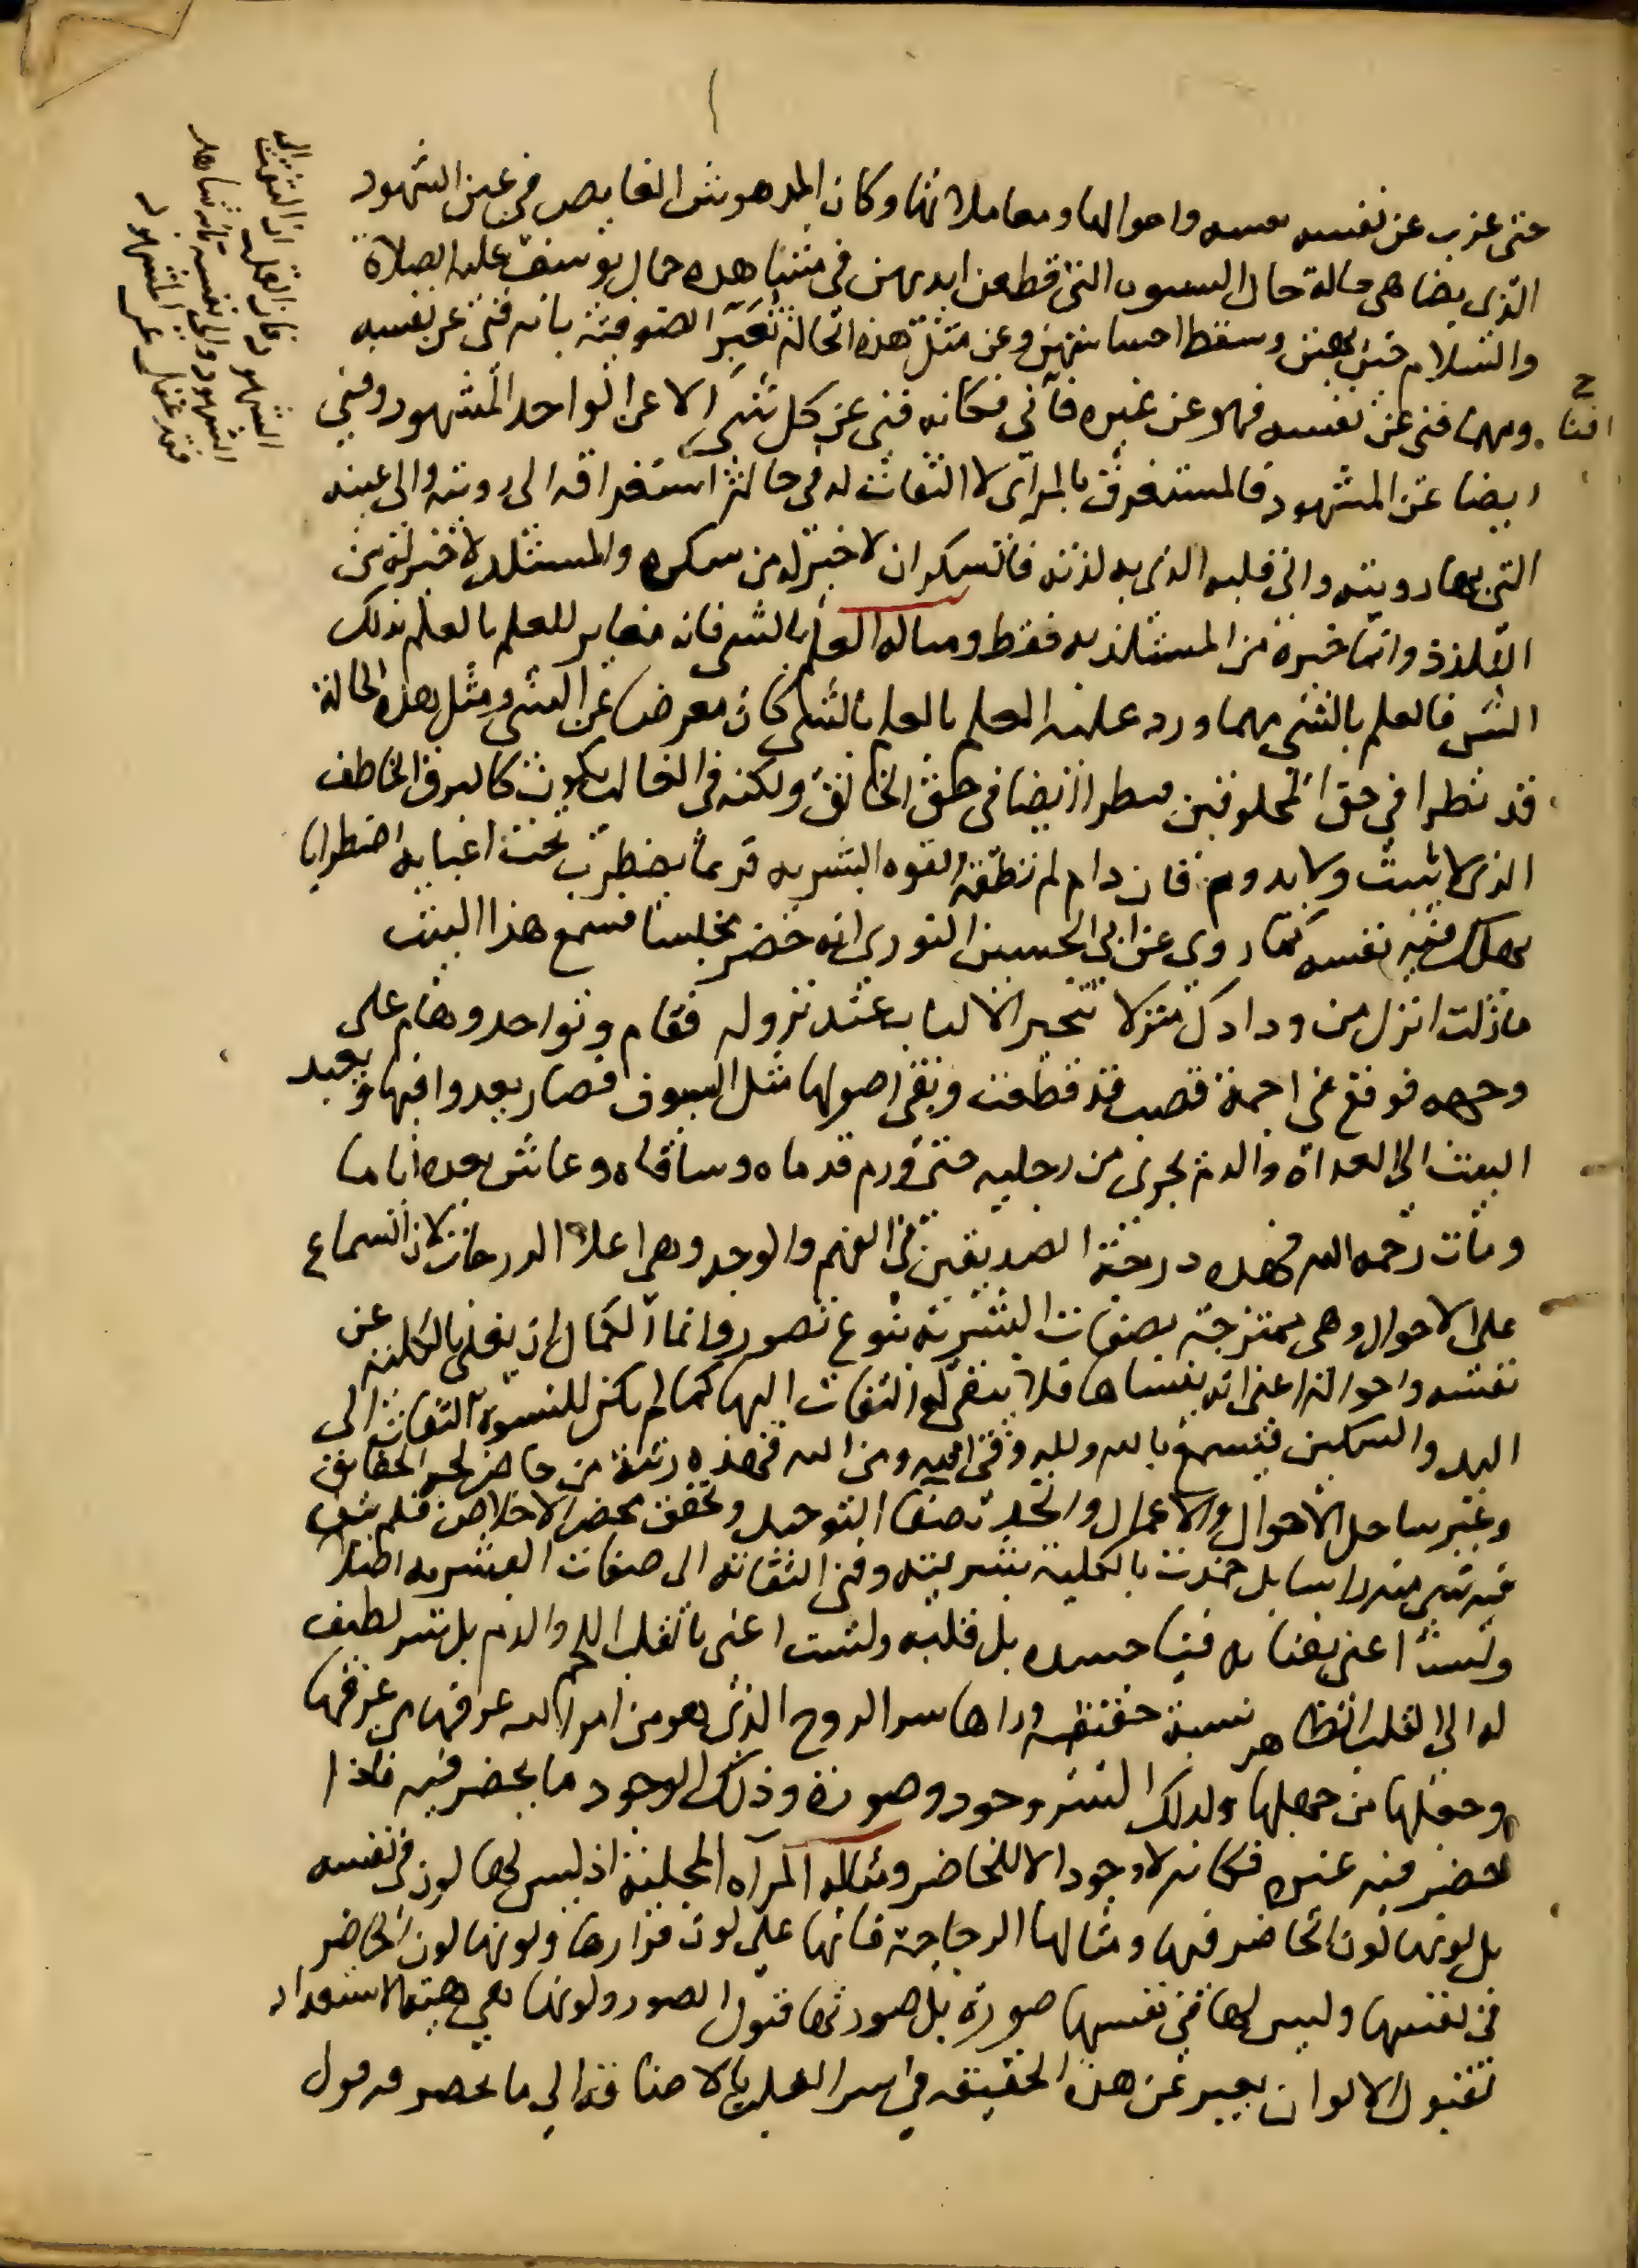 حتى عزب عن نفسه نفسه واحوالها ومعاملاتها وكان المدهوش الغايص في عين الشهود
الذي يضاهي حالة حال النسوه التي قطعن ايديهن في مشاهده جمال يوسف عليه الصلاة
والسلام حتى بهتن وسقط احساسهن وعن مثل هذه الحالة تعبر الصوفية بانه فنى عن نفسه
ومهما فنى عن نفسه فهو عن غيره فأنى فكانه فنى عن كل شى الا عن الواحد المشهود وفني
ايضا عن الشهود فالمستغرق بالمرأى لا التفات له في حالة استغراقه الى رويته والى عينه
التي بها رويته والى قلبه الذي به لذته فالسكران لا خبر له من سكره والمستلذ لا خبر له من
التلذذ وانما خبره من المستلذ به فقط ومثاله العلم بالشى فانه مغاير للعلم بالعلم بذلك
الشى فالعلم بالشى مهما ورد عليه العلم بالعلم بالشى كان معرضا عن الشى ومثل هذه الحالة
قد تطرا في حق المخلوقين وتطرا ايضا في حق الخالق ولكنه في الغالب يكون كالبرق الخاطف
الذي لا يثبت ولا يدوم فان دام لم تطقه القوه البشريه فربما يضطرب تحت اعبايه اضطرابا
يهلك فيه نفسه كما روي عن ابي الحسين النوري انه حضر مجلسا فسمع هذا البيت
مازلت انزل من ودادك منزلا تتحير الالباب عند نزوله فقام وتواجد وهام على
وجهه فوقع في اجمة قصب قد قطعت وبقى اصولها مثل السيوف فصار يعدوا فيها ويعيد
البيت الى الغداة والدم يجرى من رجليه حتى ورم قدماه وساقاه وعاش بعده اياما
ومات رحمه الله فهذه درجة الصديقين في الفهم والوجد وهي اعلا الدرجات لان السماع
على الاحوال وهى ممتزجة بصفات البشرية نوع قصور وانما الكمال ان يفنى بالكلية عن
نفسه واحواله اعنى انه ينساها فلا يبقى له التفات اليها كما لم يكن للنسوة التفات الى
اليد والسكين فيسمع بالله ولله وفي الله ومن الله فهذه رتبة من خاض لجة الحقايق
وعبر ساحل الاحوال والاعمال واتحد بصفا التوحيد وتحقق بمحض الاخلاص فلم يبق
فيه شى منه راسا بل خمدت بالكلية بشريته وفنى التفاته الى صفات البشريه اصلا
ولست اعنى بفنايه فنا جسده بل قلبه ولست اعنى بالقلب اللحم والدم بل سر لطيف
له الى القلب الظاهر نسبة خفية وراها سر الروح الذي هو من امر الله عرفها من عرفها
وجهلها من جهلها ولذلك السر وجود وصورة وذلك الوجود ما يحضر فيه فاذا
حضر فيه غيره فكانه لا وجود الا للحاضر ومثاله المرآه المجلية اذ ليس لها لون في نفسه
بل لونها لون الحاضر فيها ومثالها الزجاجة فانها على لون قرارها ولونها لون الحاضر
في نفسها وليس لها في نفسها صورة بل صورتها قبول الصور ولونها هي هيئة الاستعداد
لقبول الالوان يعبر عن هذه الحقيقه في سر القلب بالاضافة الى ما يحضر فيه قول
افنا
الشهود فان القلب اذا التفت الى
الشهود والى نفسه بانه شاهد
فقد غفل عن المشهود